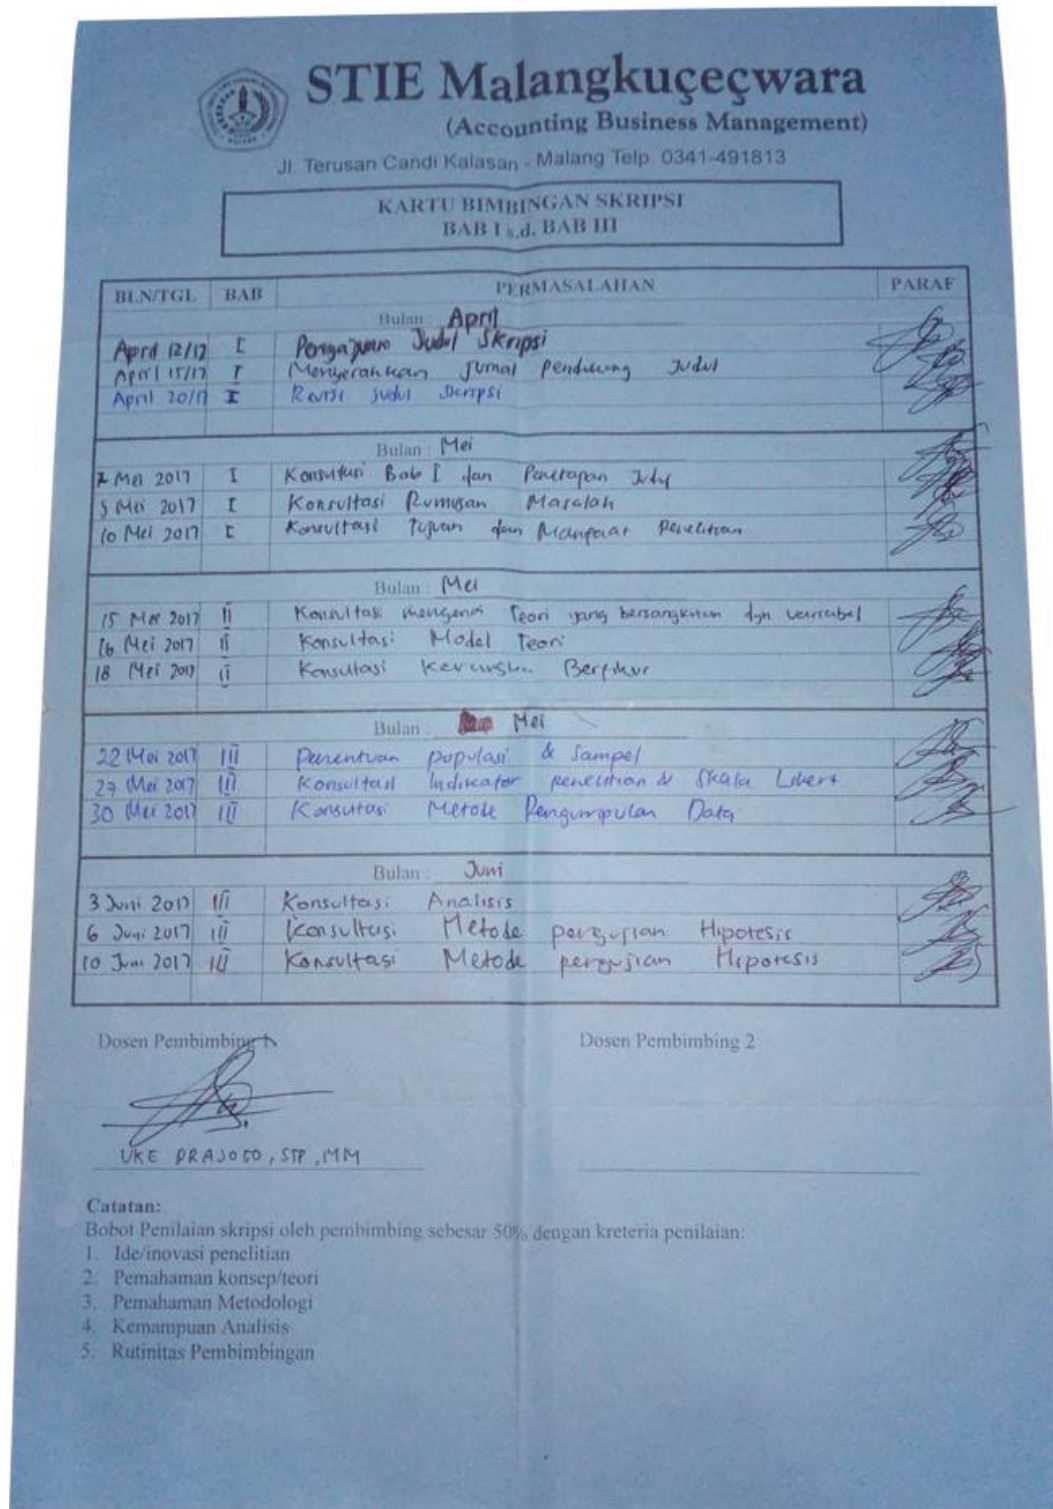 STIE Malangkuçeçwara
(Accounting Business Management)
Jl. Terusan Candi Kalasan - Malang Telp. 0341-491813
KARTU BIMBINGAN SKRIPSI
BAB I s.d. BAB III
BLN/TGL BAB PERMASALAHAN PARAF
Bulan : April
April 12/17 I Pengajuan Judul Skripsi
April 15/17 I Menyerahkan Jurnal Pendukung Judul
April 20/17 I Revisi Judul Skripsi
Bulan : Mei
2 Mei 2017 I Konsultasi Bab I dan Penetapan Judul
5 Mei 2017 I Konsultasi Rumusan Masalah
10 Mei 2017 I Konsultasi Tujuan dan Manfaat Penelitian
Bulan : Mei
15 Mei 2017 II Konsultasi mengenai Teori yang bersangkutan dgn variabel
16 Mei 2017 II Konsultasi Model Teori
18 Mei 2017 II Konsultasi Kerangka Berfikir
Bulan : Mei
22 Mei 2017 III Penentuan populasi & Sampel
27 Mei 2017 III Konsultasi Indikator penelitian & Skala Likert
30 Mei 2017 III Konsultasi Metode Pengumpulan Data
Bulan : Juni
3 Juni 2017 III Konsultasi Analisis
6 Juni 2017 III Konsultasi Metode pengujian Hipotesis
10 Juni 2017 III Konsultasi Metode pengujian Hipotesis
Dosen Pembimbing 1 Dosen Pembimbing 2
UKE PRAJOGO, STP, MM
Catatan:
Bobot Penilaian skripsi oleh pembimbing sebesar 50% dengan kreteria penilaian:
1. Ide/inovasi penelitian
2. Pemahaman konsep/teori
3. Pemahaman Metodologi
4. Kemampuan Analisis
5. Rutinitas Pembimbingan